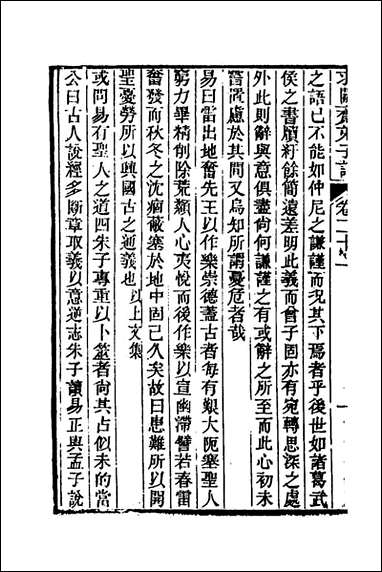 求闕齋弟子記 卷二十
之語已不能如仲尼之謙謹而況其下焉者乎後世如諸葛武
侯之書牘紆餘簡遠差明此義而曾子固亦有宛轉思深之處
外此則辭與意俱盡尚何謙謹之有或辭之所至而此心初未
嘗置慮於其間又烏知所謂憂危者哉
易曰雷出地奮先王以作樂崇德蓋古者每有艱大阨塞聖人
窮力畢精削除荒纇人心夷悅而後作樂以宣幽滯譬若春雷
奮發而秋冬之沈痼蔽塞於地中固已久矣故曰患難所以開
聖憂勞所以興國古之通義也以上文集
或問易有聖人之道四朱子專重以卜筮者尚其占似未的當
公曰古人說經多斷章取義以意逆志朱子讀易正與孟子說